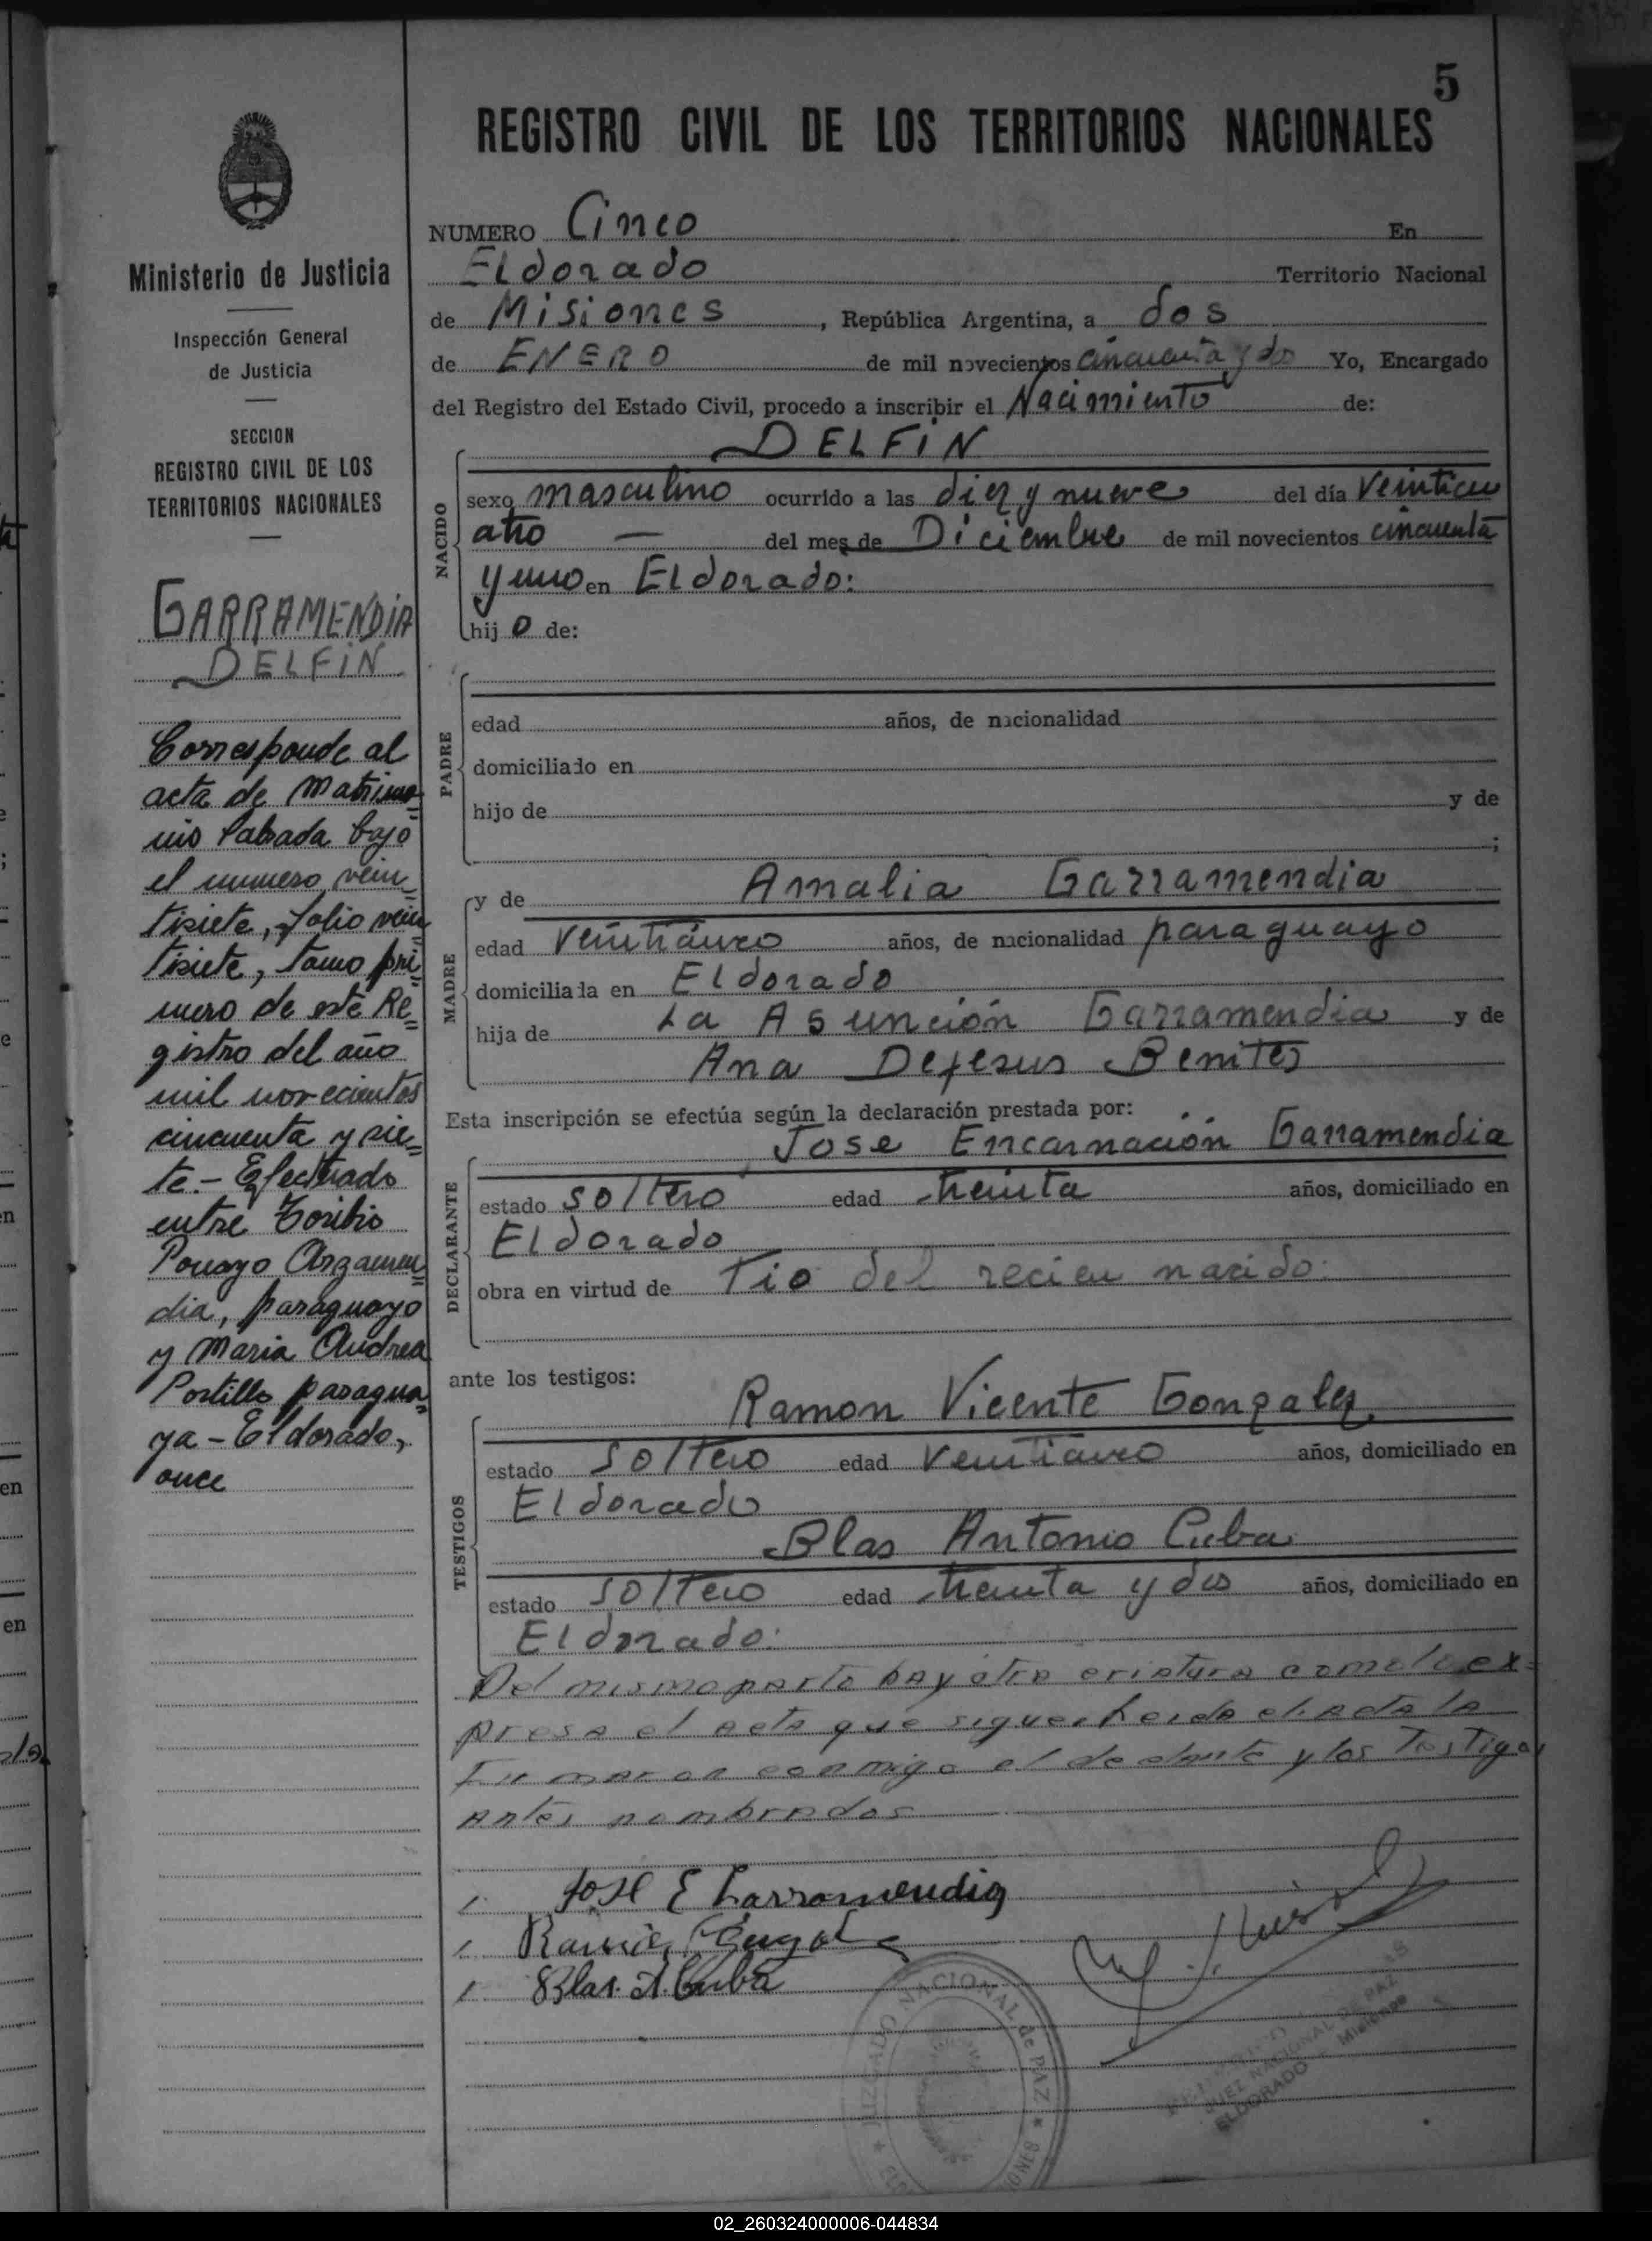 5
REGISTRO CIVIL DE LOS TERRITORIOS NACIONALES
Ministerio de Justicia
Inspección General
de Justicia
SECCION
REGISTRO CIVIL DE LOS
TERRITORIOS NACIONALES
GARRAMENDIA
DELFIN
Corresponde al
acta de Matrimo=
nio labrada bajo
el numero vein=
tisiete, folio vein
tisiete, tomo pri=
mero de este Re=
gistro del año
mil novecientos
cincuenta y sie=
te.- Efectuado
entre Toribio
Arzamen=
dia, paraguayo
y Maria Andrea
Portillo paragua=
ya - Eldorado,
once
NUMERO Cinco En
Eldorado Territorio Nacional
de Misiones, República Argentina, a dos
de ENERO de mil novecientos cincuenta y dos Yo, Encargado
del Registro del Estado Civil, procedo a inscribir el Nacimiento de:
DELFIN
NACIDO
sexo masculino ocurrido a las diez y nueve del día veinticu
atro — del mes de Diciembre de mil novecientos cincuenta
y uno en Eldorado:
hij o de:
PADRE
edad años, de nacionalidad
domiciliado en
hijo de y de
;
MADRE
y de Amalia Garramendia
edad veinticinco años, de nacionalidad paraguayo
domiciliada en Eldorado
hija de La Asunción Garramendia y de
Ana Dejesus Benites
Esta inscripción se efectúa según la declaración prestada por:
DECLARANTE
Jose Encarnación Garramendia
estado soltero edad treinta años, domiciliado en
Eldorado
obra en virtud de Tio del recien nacido.
ante los testigos:
TESTIGOS
Ramon Vicente Gonzalez
estado soltero edad veinticinco años, domiciliado en
Eldorado
Blas Antonio Cuba
estado soltero edad treinta y dos años, domiciliado en
Eldorado.
Del mismo parto hay otra criatura como lo ex=
presa el acta que sigue. Leida el acta la
firmaron conmigo el y los Testigos
antes nombrados
Jose E Garramendia
Blas. A. Cuba
JUZGADO NACIONAL de PAZ
JUEZ NACIONAL DE PAZ
ELDORADO - Misiones
02_260324000006-044834